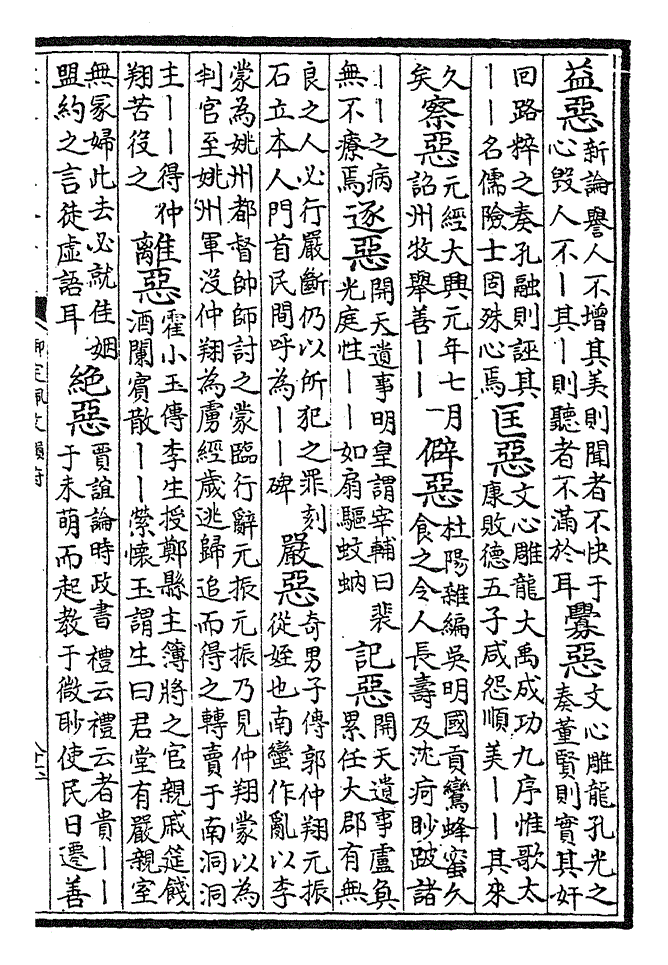 益惡
新論譽人不增其美則聞者不快于
心毀人不—其—則聽者不滿於耳
釁惡
文心雕龍孔光之
奏董賢則實其奸
回路粹之奏孔融則誣其
——名儒險士固殊心焉
匡惡
文心雕龍大禹成功九序惟歌太
康敗德五子咸怨順美——其來
久
矣
察惡
元經大興元年七月
詔州牧舉善——
僻惡
杜陽雜編吳明國貢鸞蜂蜜久
食之令人長壽及沈疴眇跛諸
——之病
無不療焉
逐惡
開天遺事明皇謂宰輔曰裴
光庭性——如扇驅蚊蚋
記惡
開天遺事盧奐
累任大郡有無
良之人必行嚴斷仍以所犯之罪刻
石立本人門首民間呼為——碑
嚴惡
奇男子傳郭仲翔元振
從姪也南蠻作亂以李
蒙為姚州都督帥師討之蒙臨行辭元振元振乃見仲翔蒙以為
判官至姚州軍沒仲翔為虜經歲逃歸追而得之轉賣于南洞洞
主——得仲
翔苦役之
離惡
霍小玉傳李生授鄭縣主簿將之官親戚筵餞
酒闌賓散——縈懷玉謂生曰君堂有嚴親室
無冢婦此去必就佳姻
盟約之言徒虛語耳
絕惡
賈誼論時政書禮云禮云者貴——
于未萌而起教于微眇使民日遷善